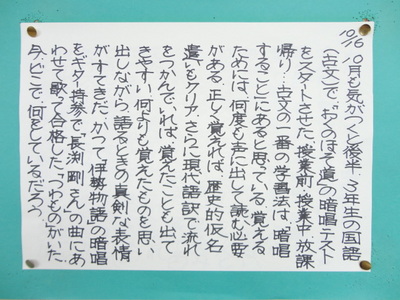 10/16 10月も気がつくと後半。3年生の国語
(古文)で、「おくのほそ道」の暗唱テスト
をスタートさせた。授業前・授業中・放課
帰り…古文の一番の学習法は、暗唱
することにあると思っている。覚える
ためには、何度も声に出して読む必要
がある。正しく覚えれば、歴史的仮名
遣いもクリア。さらに現代語訳で流れ
をつかんでいれば、覚えたことも出て
きやすい。何よりも覚えたものを思い
出しながら、語るときの真剣な表情
がすてきだ。かつて「伊勢物語」の暗唱
をギター持参で、「長渕剛さん」の曲にあ
わせて歌って合格した「つわもの」がいた。
今、どこで、何をしているだろう。